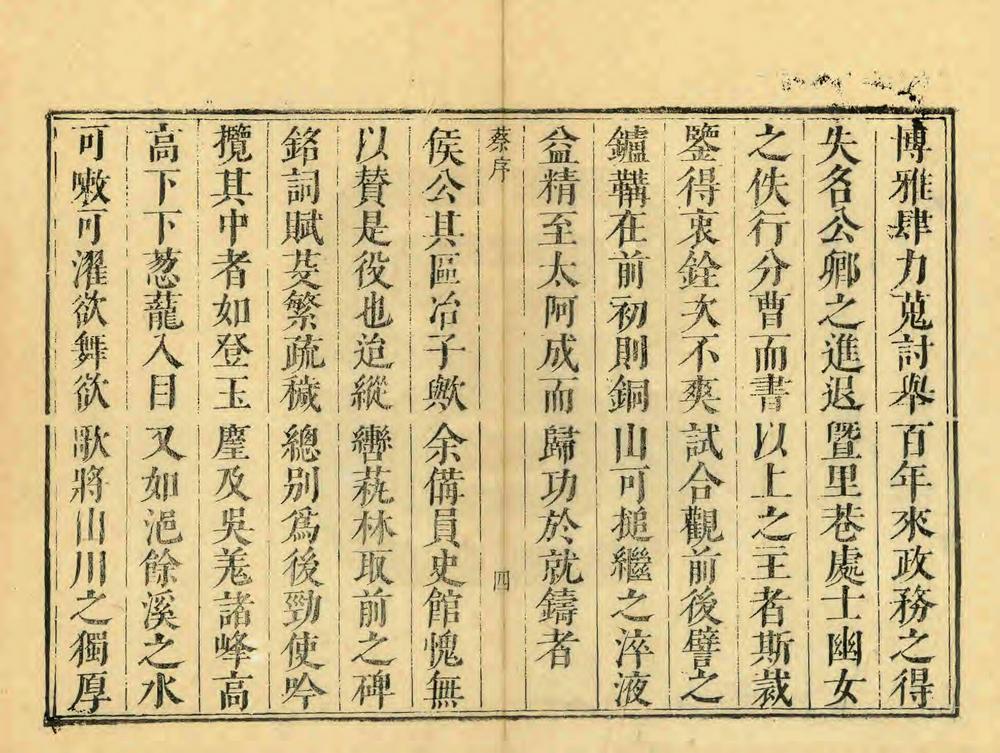 博雅肆力蒐討舉百年來政務之得
失名公卿之進退曁里巷處士幽女
之佚行分曹而書以上之主者斯裁
鑒得衷銓次不爽試合觀前後譬之
鑪鞲在前初則銅山可搥繼之淬液
益精至太阿成而歸功於就鑄者
蔡序
四
侯公其區冶子歟余備員史館愧無
以賛是役也迨縱轡蓺林取前之碑
銘詞賦芟繁疏穢總别爲後勁使吟
攬其中者如登玉塵及吳羗諸峰高
高下下葱蘢入目又如浥餘溪之水
可嗽可濯欲舞欲歌將山川之獨厚